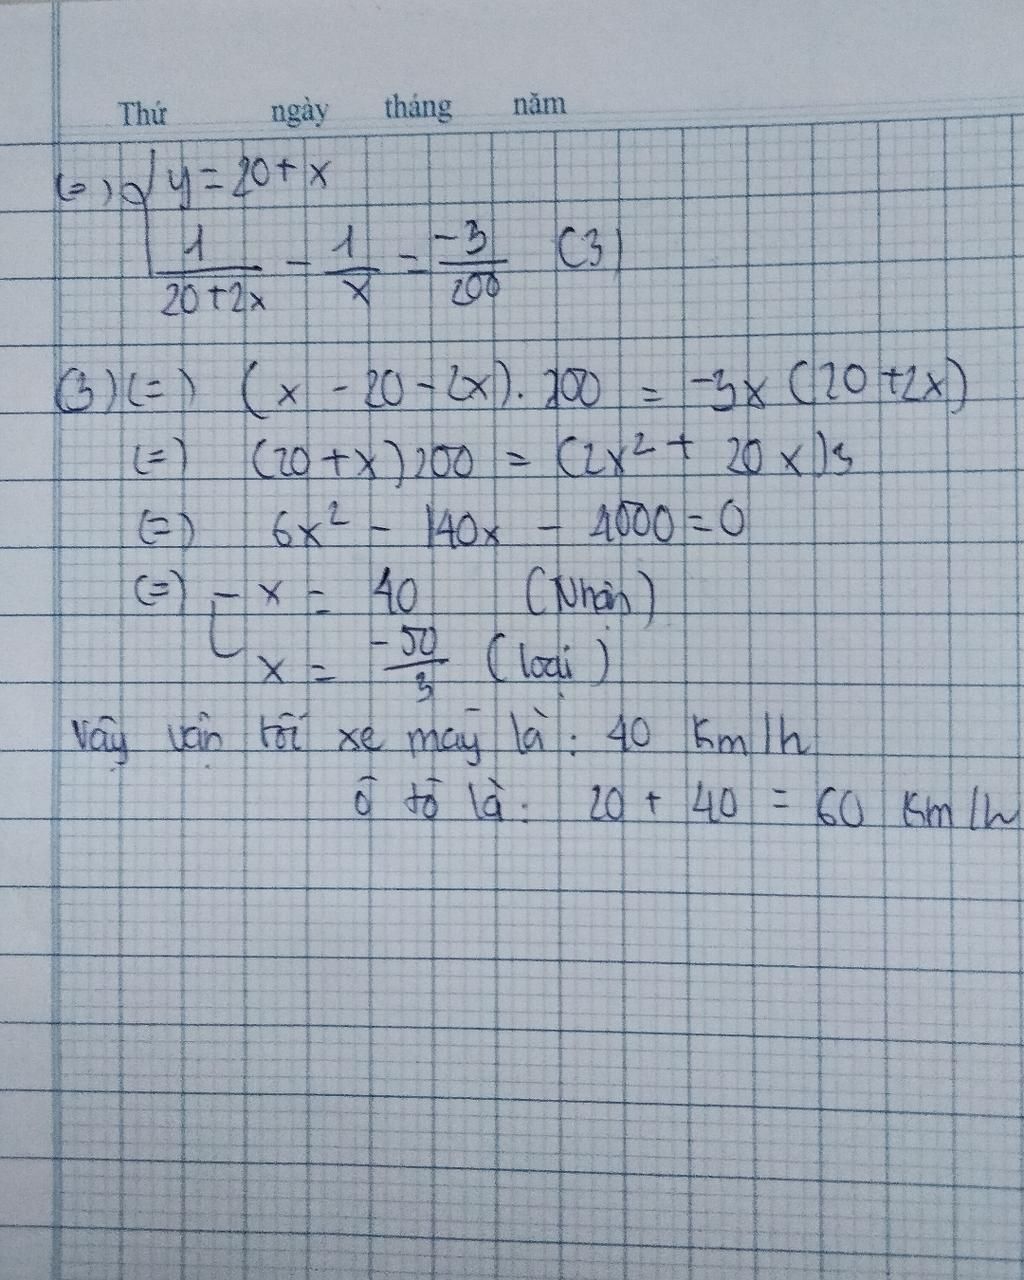 Thứ ngày tháng năm
(=) { y = 20 + x
1/(20+2x) - 1/x = -3/200 (3)
(3) (=) (x - 20 - 2x). 200 = -3x (20 + 2x)
(=) (20 + x) 200 = (2x² + 20x)3
(=) 6x² - 140x - 4000 = 0
(=) [ x = 40 (Nhận)
x = -50/3 (loại)
Vậy vận tốc xe máy là: 40 Km/h
ô tô là: 20 + 40 = 60 Km/h